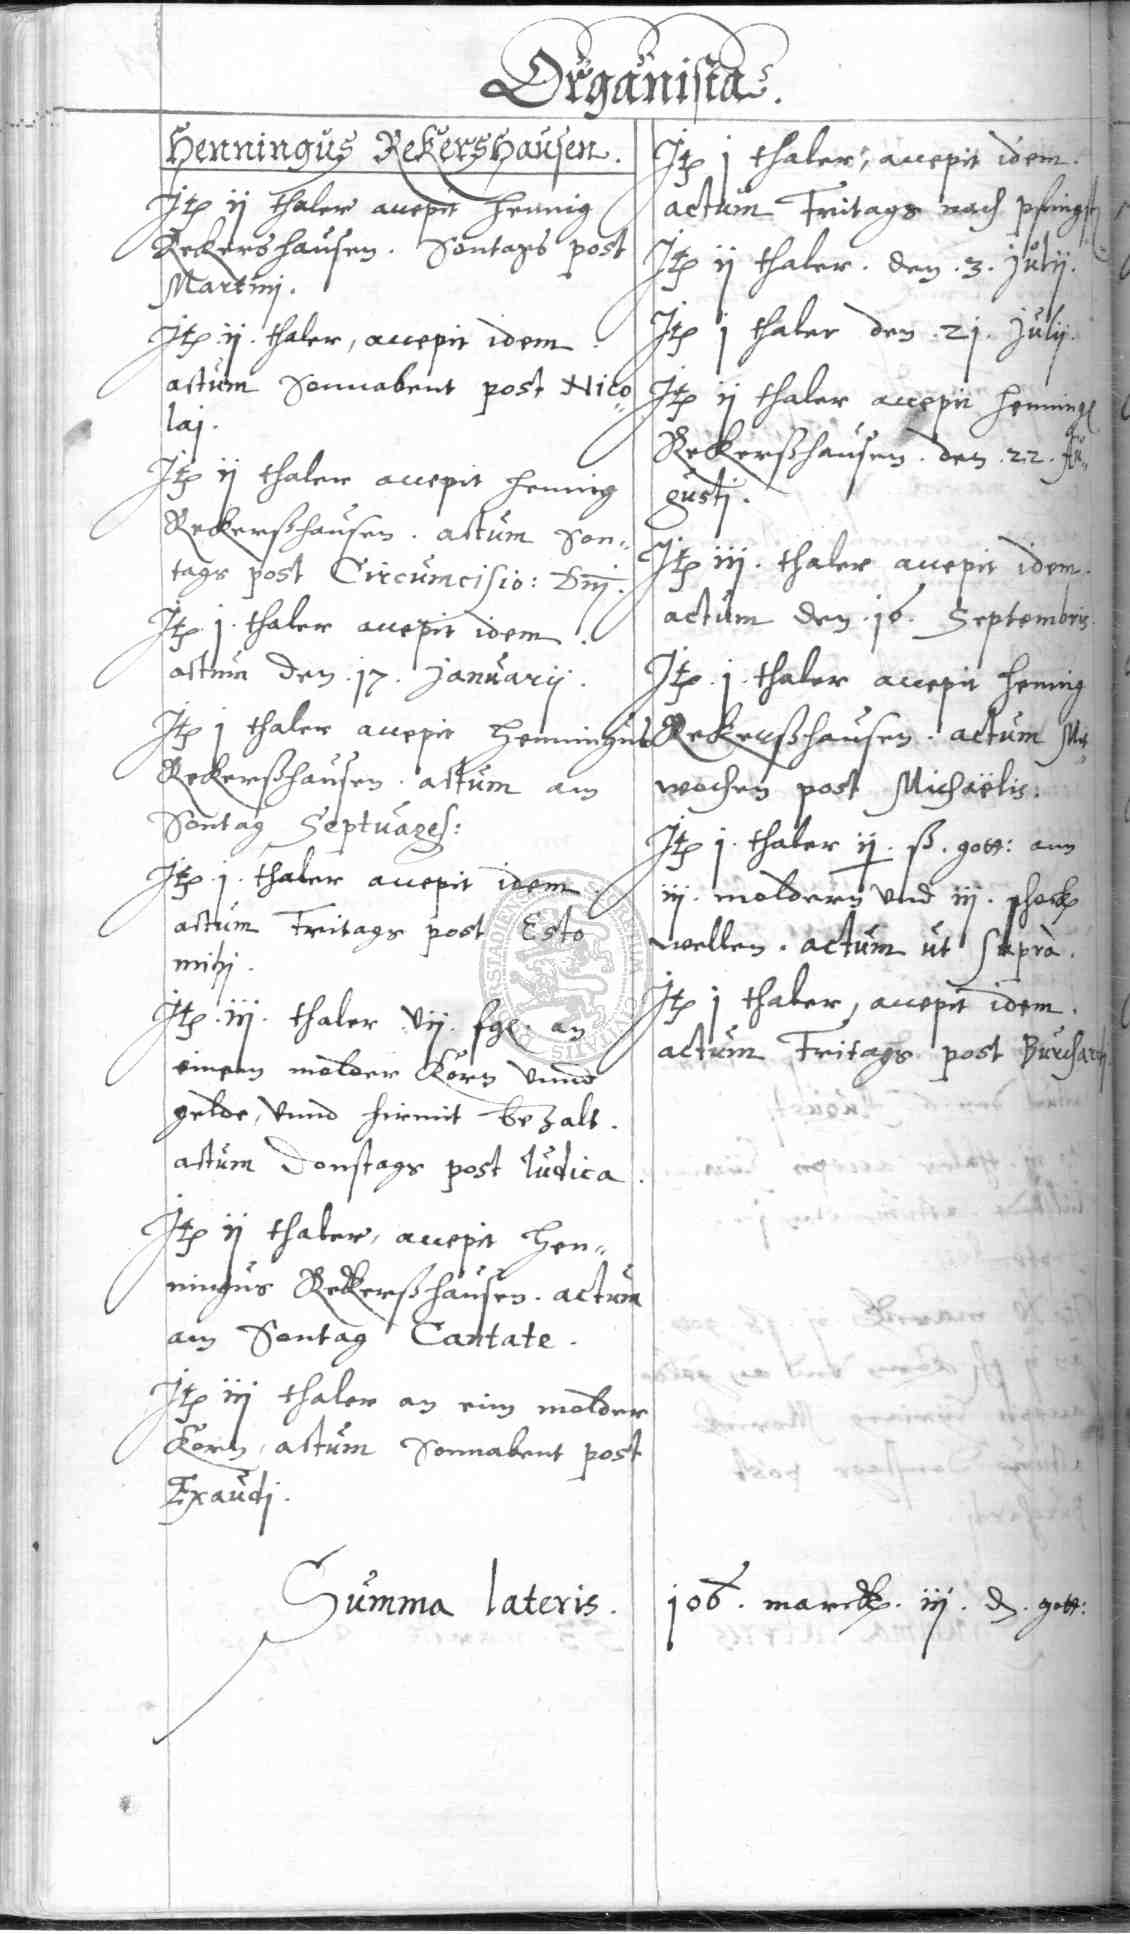 Organista.
Henningus Rekershausen.
Itp ij thaler accepit Hennig
Rekershausen. Sontags post
Martinj.
Itp. ij. thaler, accepit idem.
actum Sonnabent post Nico„
laj.
Itp ij thaler accepit Hennig
Rekerßhausen. actum Son„
tags post Circumcisio: Dnj.
Itp. j. thaler accepit idem.
actum den .17. Januarij.
Itp j thaler accepit Henningus
Rekerßhausen. actum am
Sontag Septuages:
Itp. j. thaler accepit idem.
actum Freitags post Esto
mihj.
Itp. iij. thaler vij. fgl. an
einem molder Korn vnnd
gelde, vnnd hirmit bezalt.
actum Donstags post Iudica.
Itp ij thaler, accepit Hen„
ningus Rekerßhausen. actum
am Sontag Cantate.
Itp iij thaler an eim molder
Korn, actum Sonnabent post
Exaudj.
Itp j thaler, accepit idem.
actum Freitags nach Pfingst
Itp ij thaler. den .3. Julij.
Itp j thaler den .21. Julij.
Itp ij thaler accepit Henning
Rekerßhausen. den .22. Au„
gustj.
Itp iij. thaler accepit idem.
actum den .16. Septembris.
Itp. j. thaler accepit Hennig
Rekerßhausen. actum Mit„
wochen post Michaëlis.
Itp j. thaler ij. ß. gott: ann
iij. moldern vnd iij. schock
wellen. actum ut supra.
Itp j thaler, accepit idem.
actum Freitags post Burchardj.
Summa lateris. 106. marck. iij. d. gott: